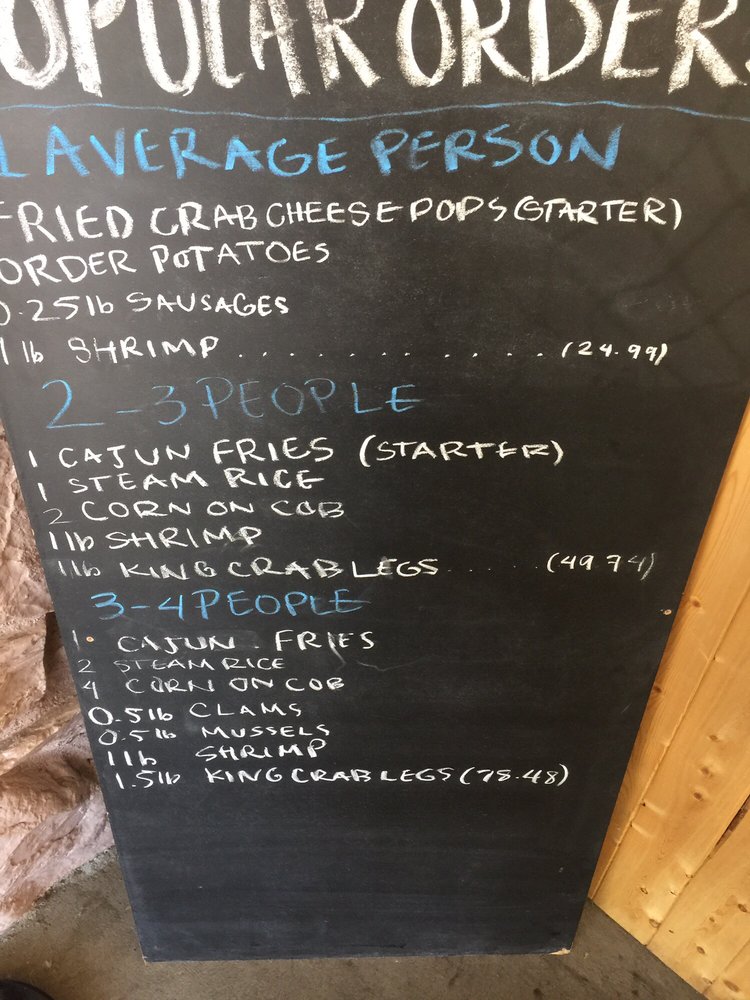 OPULAR ORDERS
1 AVERAGE PERSON
FRIED CRAB CHEESE POPS (STARTER)
ORDER POTATOES
0.25lb SAUSAGES
1 lb SHRIMP . . . . . . . . . . . . (24.99)
2-3 PEOPLE
1 CAJUN FRIES (STARTER)
1 STEAM RICE
2 CORN ON COB
1lb SHRIMP
1lb KING CRAB LEGS . . . . . (49.74)
3-4 PEOPLE
1 CAJUN FRIES
2 STEAM RICE
4 CORN ON COB
0.5lb CLAMS
0.5lb MUSSELS
1lb SHRIMP
1.5lb KING CRAB LEGS (78.48)